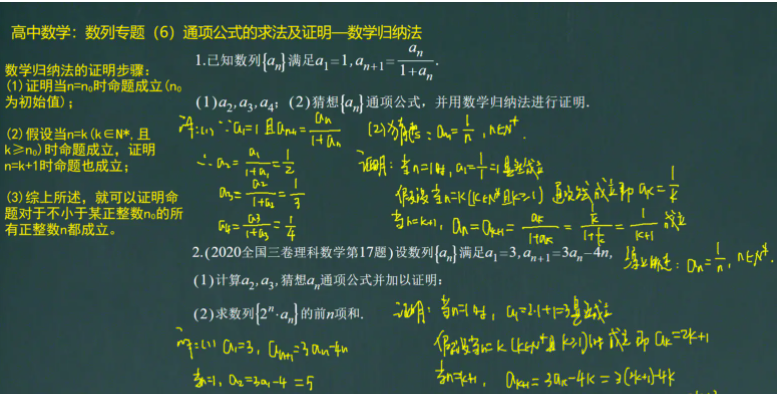 高中数学：数列专题（6）通项公式的求法及证明—数学归纳法
数学归纳法的证明步骤：
(1)证明当n=n₀时命题成立(n₀
为初始值)；
(2)假设当n=k(k∈N*,且
k≥n₀)时命题成立，证明
n=k+1时命题也成立；
(3)综上所述，就可以证明命
题对于不小于某正整数n₀的所
有正整数n都成立。
1.已知数列{aₙ}满足a₁=1,aₙ₊₁=aₙ/(1+aₙ).
(1)a₂,a₃,a₄; (2)猜想{aₙ}通项公式，并用数学归纳法进行证明.
解:(1) ∵a₁=1且aₙ₊₁=aₙ/(1+aₙ)
∴a₂=a₁/(1+a₁)=1/2
a₃=a₂/(1+a₂)=1/3
a₄=a₃/(1+a₃)=1/4
(2)猜想：aₙ=1/n，n∈N*.
证明：当n=1时，a₁=1/1=1显然成立
假设当n=k(k∈N*且k≥1)通项公式成立即aₖ=1/k
当n=k+1，aₙ=aₖ₊₁=aₖ/(1+aₖ)=(1/k)/(1+1/k)=1/(k+1) 成立
综上所述：aₙ=1/n，n∈N*.
2.(2020全国三卷理科数学第17题)设数列{aₙ}满足a₁=3,aₙ₊₁=3aₙ−4n,
(1)计算a₂,a₃,猜想aₙ通项公式并加以证明:
(2)求数列{2ⁿ·aₙ}的前n项和.
解:(1) a₁=3，aₙ₊₁=3aₙ-4n
当n=1，a₂=3a₁-4=5
证明：当n=1时，a₁=2·1+1=3显然成立
假设当n=k(k∈N*且k≥1)时成立即aₖ=2k+1
当n=k+1，aₖ₊₁=3aₖ-4k=3(2k+1)-4k